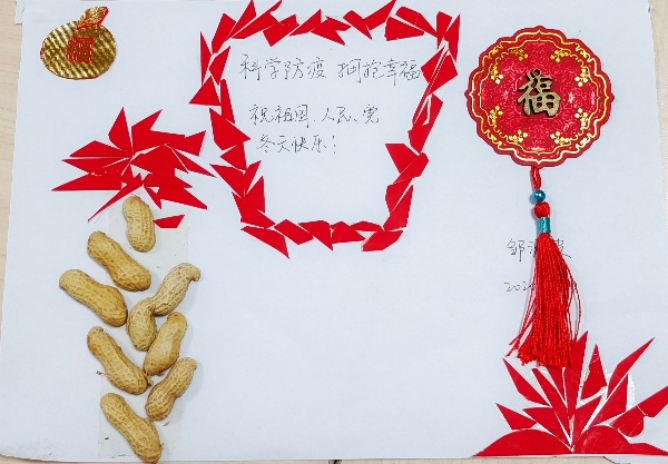 福
科学防疫 拥抱幸福
祝祖国、人民、党
冬天快乐！
福
邹
202